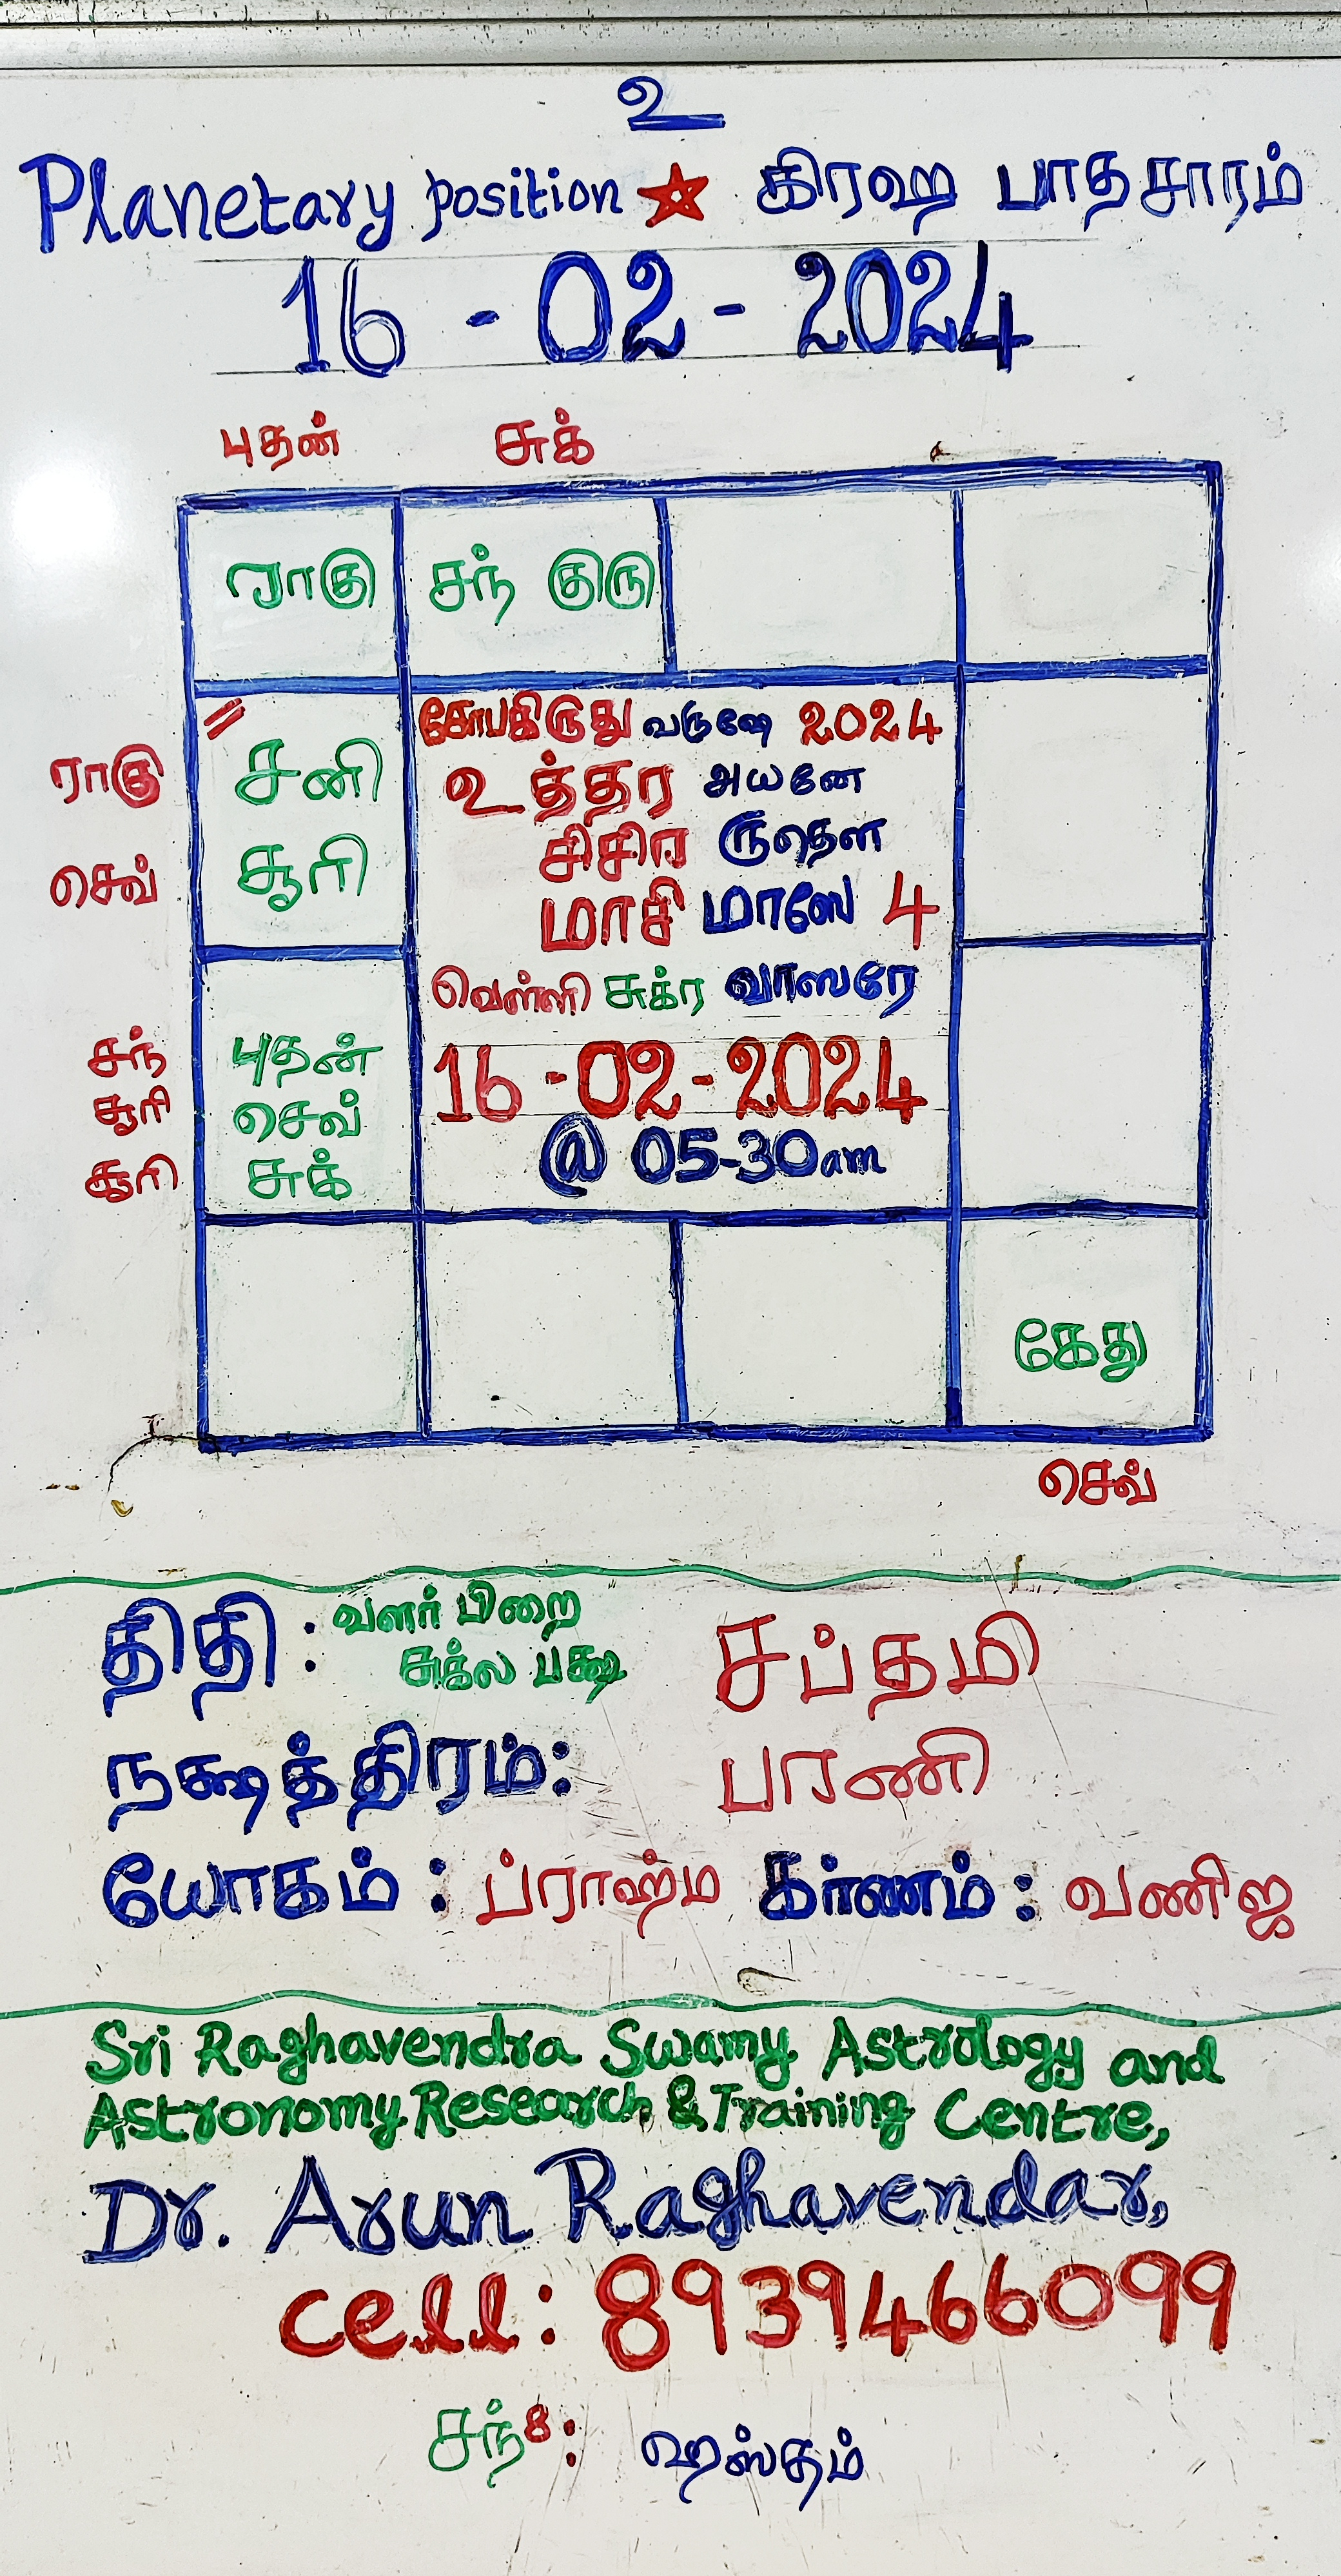 உ
Planetary position ☆ கிரஹ பாதசாரம்
16 - 02 - 2024
புதன் சுக்
ராகு சந் குரு
சோபகிருது வருஷே 2024
ராகு சனி உத்தர அயனே
செவ் சூரி சிசிர ருதௌ
மாசி மாஸே 4
வெள்ளி சுக்ர வாஸரே
சந் புதன் 16 - 02 - 2024
சூரி செவ் @ 05-30am
சூரி சுக்
கேது
செவ்
திதி : வளர் பிறை சுக்ல பக்ஷ சப்தமி
நக்ஷத்திரம்: பரணி
யோகம் : ப்ராஹ்ம கர்ணம் : வணிஜ
Sri Raghavendra Swamy Astrology and
Astronomy Research & Training Centre,
Dr. Arun Raghavendar,
cell: 8939466099
சந்8: ஹஸ்தம்